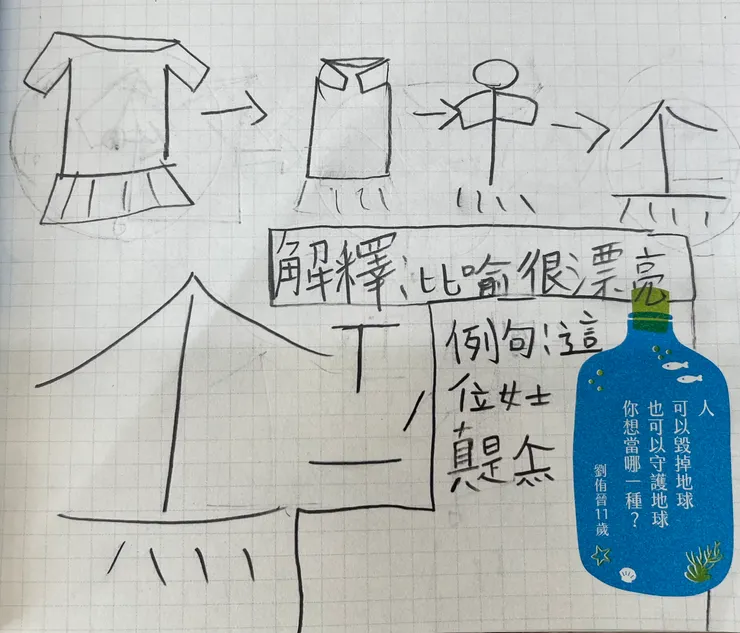 解釋:比喻很漂亮
ㄒ
ˊ
ㄧ
例句:這
位女士
真是
人
可以毀掉地球
也可以守護地球
你想當哪一種?
劉侑晉11歲